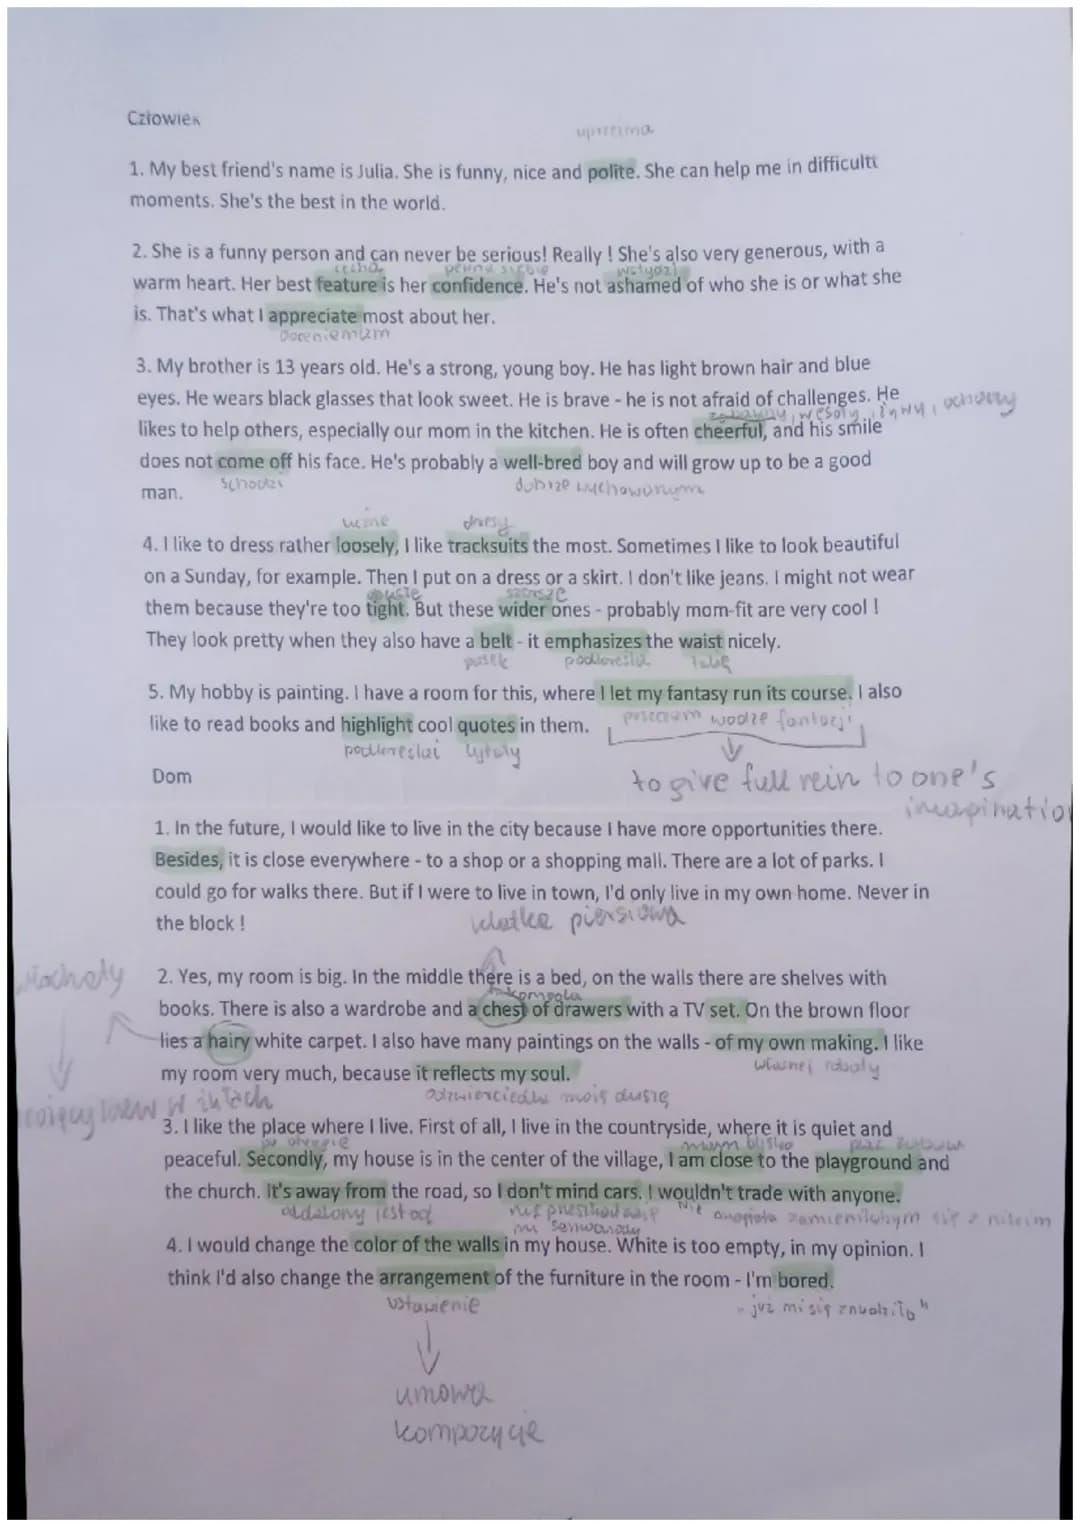 Człowiek
uprzejma
1. My best friend's name is Julia. She is funny, nice and polite. She can help me in difficultt
moments. She's the best in the world.
2. She is a funny person and can never be serious! Really ! She's also very generous, with a
cecha pewna siebie wstydzi
warm heart. Her best feature is her confidence. He's not ashamed of who she is or what she
is. That's what I appreciate most about her.
3. My brother is 13 years old. He's a strong, young boy. He has light brown hair and blue
eyes. He wears black glasses that look sweet. He is brave - he is not afraid of challenges. He
zabawny, wesoły, żywy, ochoczy
likes to help others, especially our mom in the kitchen. He is often cheerful, and his smile
does not come off his face. He's probably a well-bred boy and will grow up to be a good
schodzi dobrze wychowanym
man.
luźne dresy
4. I like to dress rather loosely, I like tracksuits the most. Sometimes I like to look beautiful
on a Sunday, for example. Then I put on a dress or a skirt. I don't like jeans. I might not wear
szersze
them because they're too tight. But these wider ones - probably mom-fit are very cool !
They look pretty when they also have a belt - it emphasizes the waist nicely.
pasek podkreśla talię
5. My hobby is painting. I have a room for this, where I let my fantasy run its course. I also
like to read books and highlight cool quotes in them.
puszczam wodze fantazji
podkreślać cytaty
to give full rein to one's
imaginatio
Dom
1. In the future, I would like to live in the city because I have more opportunities there.
Besides, it is close everywhere - to a shop or a shopping mall. There are a lot of parks. I
could go for walks there. But if I were to live in town, I'd only live in my own home. Never in
the block !
klatka piersiowa
włochaty
2. Yes, my room is big. In the middle there is a bed, on the walls there are shelves with
komoda
books. There is also a wardrobe and a chest of drawers with a TV set. On the brown floor
lies a hairy white carpet. I also have many paintings on the walls - of my own making. I like
własnej roboty
my room very much, because it reflects my soul.
odzwierciedla moją duszę
w żyłach
3. I like the place where I live. First of all, I live in the countryside, where it is quiet and
po drugie mam blisko plac zabaw
peaceful. Secondly, my house is in the center of the village, I am close to the playground and
the church. It's away from the road, so I don't mind cars. I wouldn't trade with anyone.
oddalony jest od nie przeszkadzają mi samochody
Nie zamieniłabym się z nikim
4. I would change the color of the walls in my house. White is too empty, in my opinion. I
think I'd also change the arrangement of the furniture in the room - I'm bored.
ustawienie
„już mi się znudziło"
umowa
kompozycje